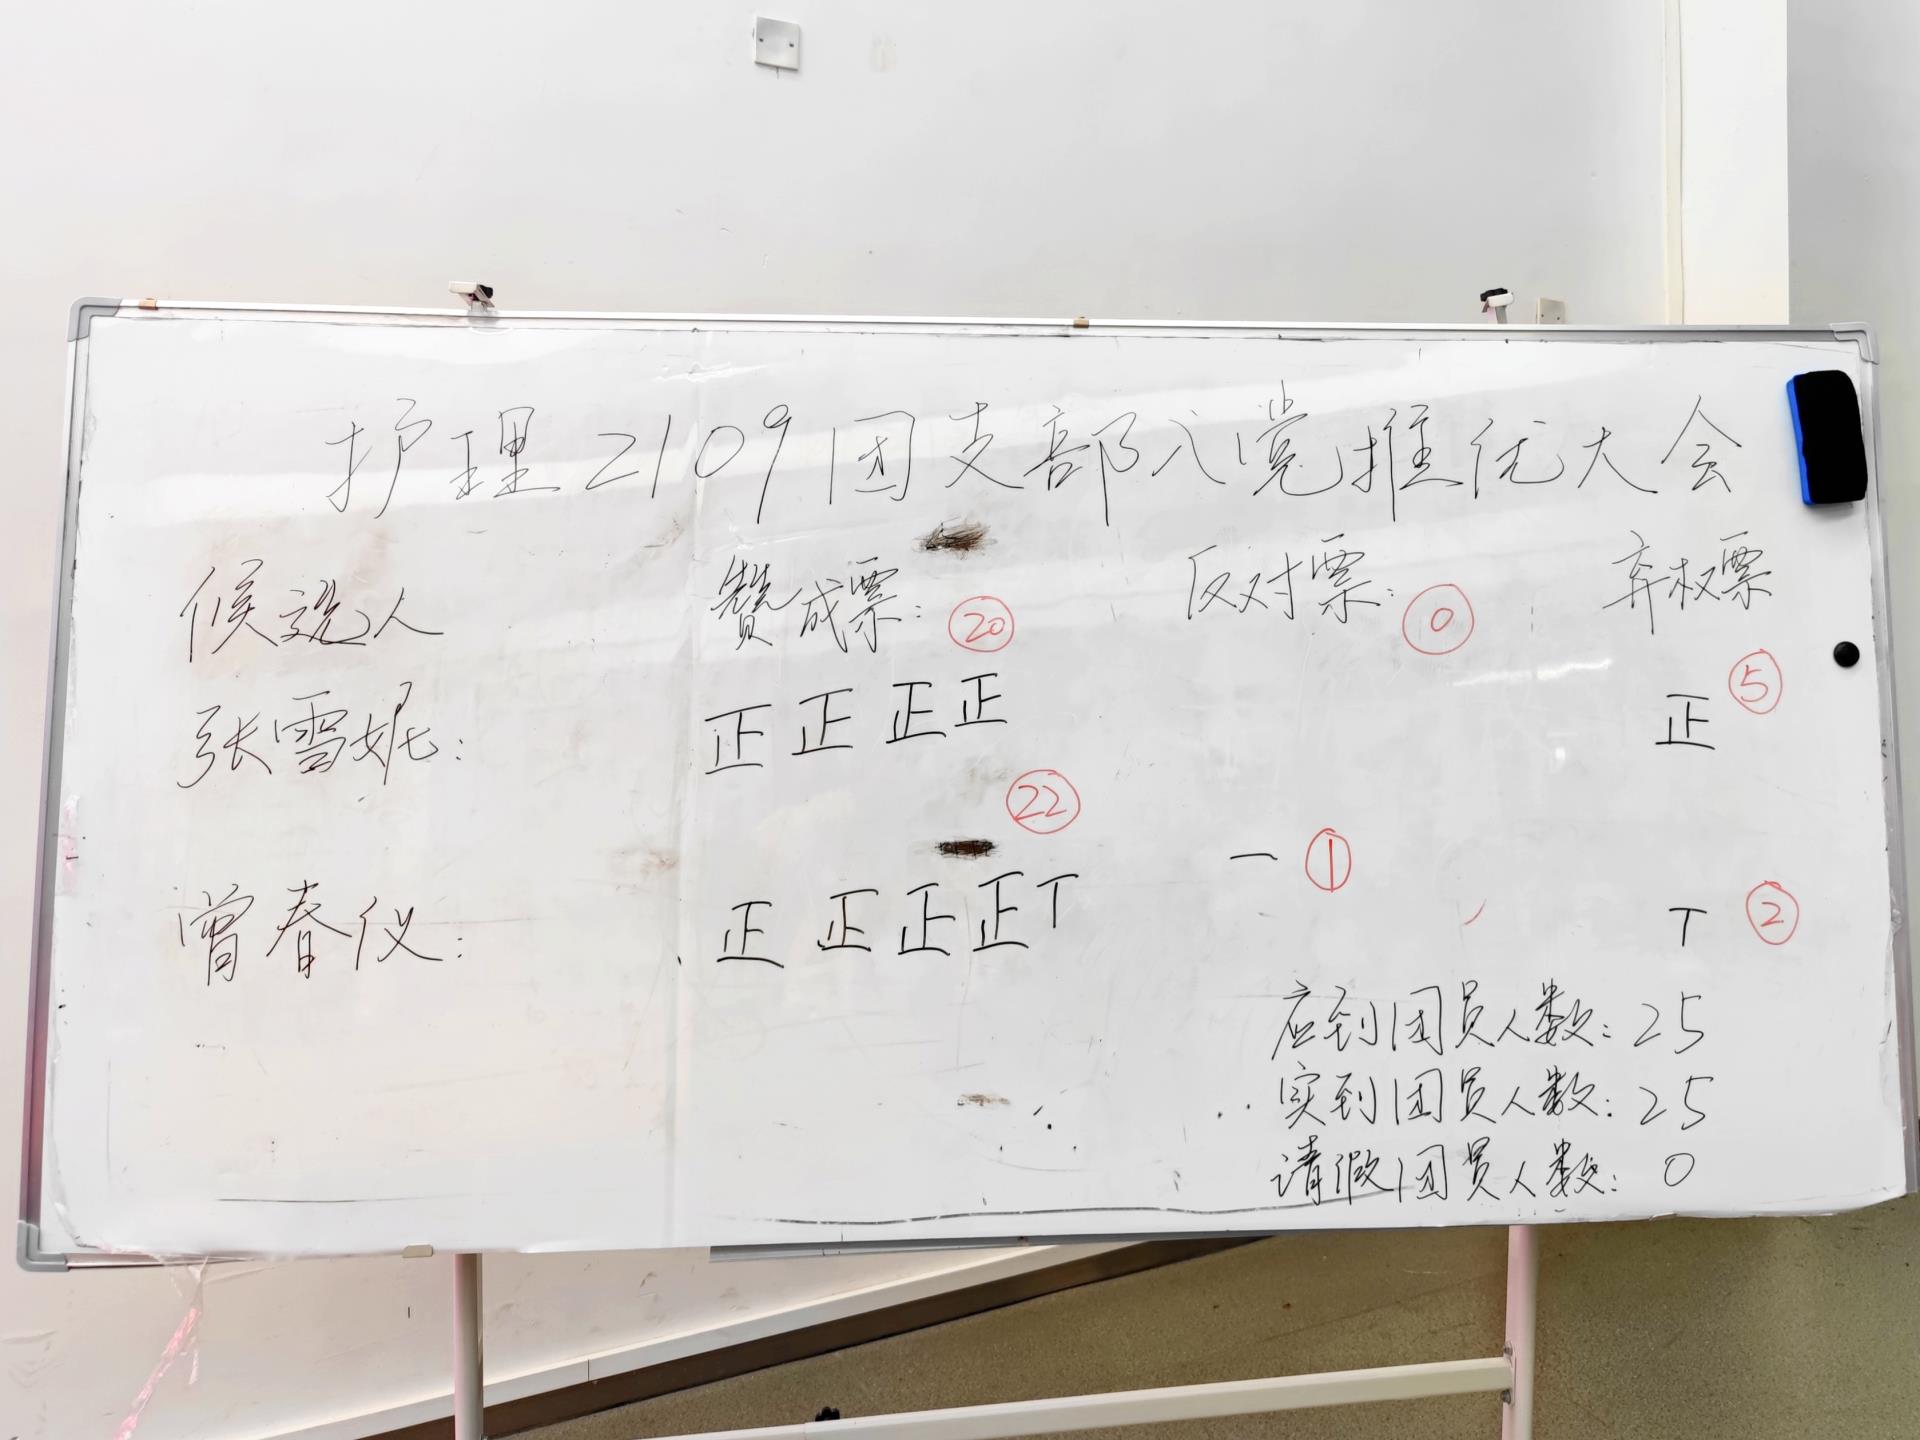 护理2109团支部入党推优大会
候选人 赞成票: 20 反对票: 0 弃权票
张雪妮: 正正正正 正 5
22
曾春仪: 正正正正丅 一 1 丅 2
应到团员人数: 25
实到团员人数: 25
请假团员人数: 0